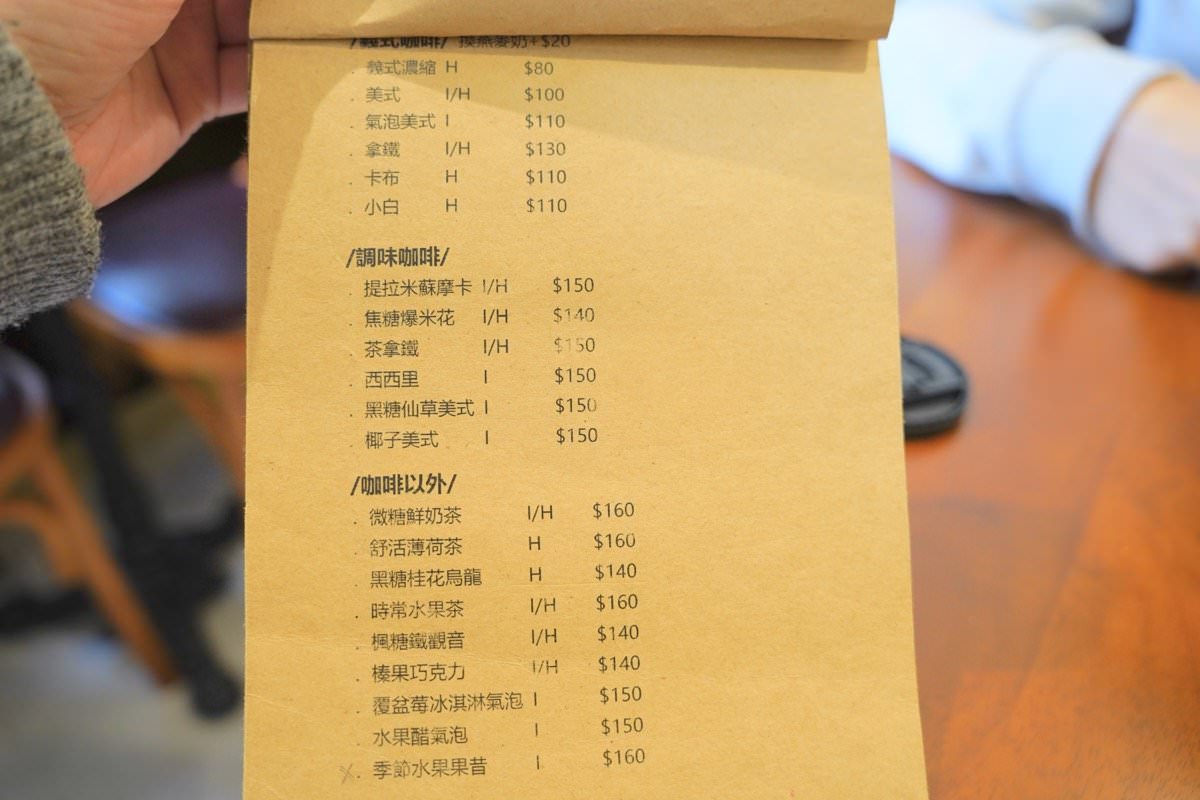 /義式咖啡/ 換燕麥奶+$20
. 義式濃縮 H $80
. 美式 I/H $100
. 氣泡美式 I $110
. 拿鐵 I/H $130
. 卡布 H $110
. 小白 H $110
/調味咖啡/
. 提拉米蘇摩卡 I/H $150
. 焦糖爆米花 I/H $140
. 茶拿鐵 I/H $150
. 西西里 I $150
. 黑糖仙草美式 I $150
. 椰子美式 I $150
/咖啡以外/
. 微糖鮮奶茶 I/H $160
. 舒活薄荷茶 H $160
. 黑糖桂花烏龍 H $140
. 時常水果茶 I/H $160
. 楓糖鐵觀音 I/H $140
. 榛果巧克力 I/H $140
. 覆盆莓冰淇淋氣泡 I $150
. 水果醋氣泡 I $150
x. 季節水果果昔 I $160